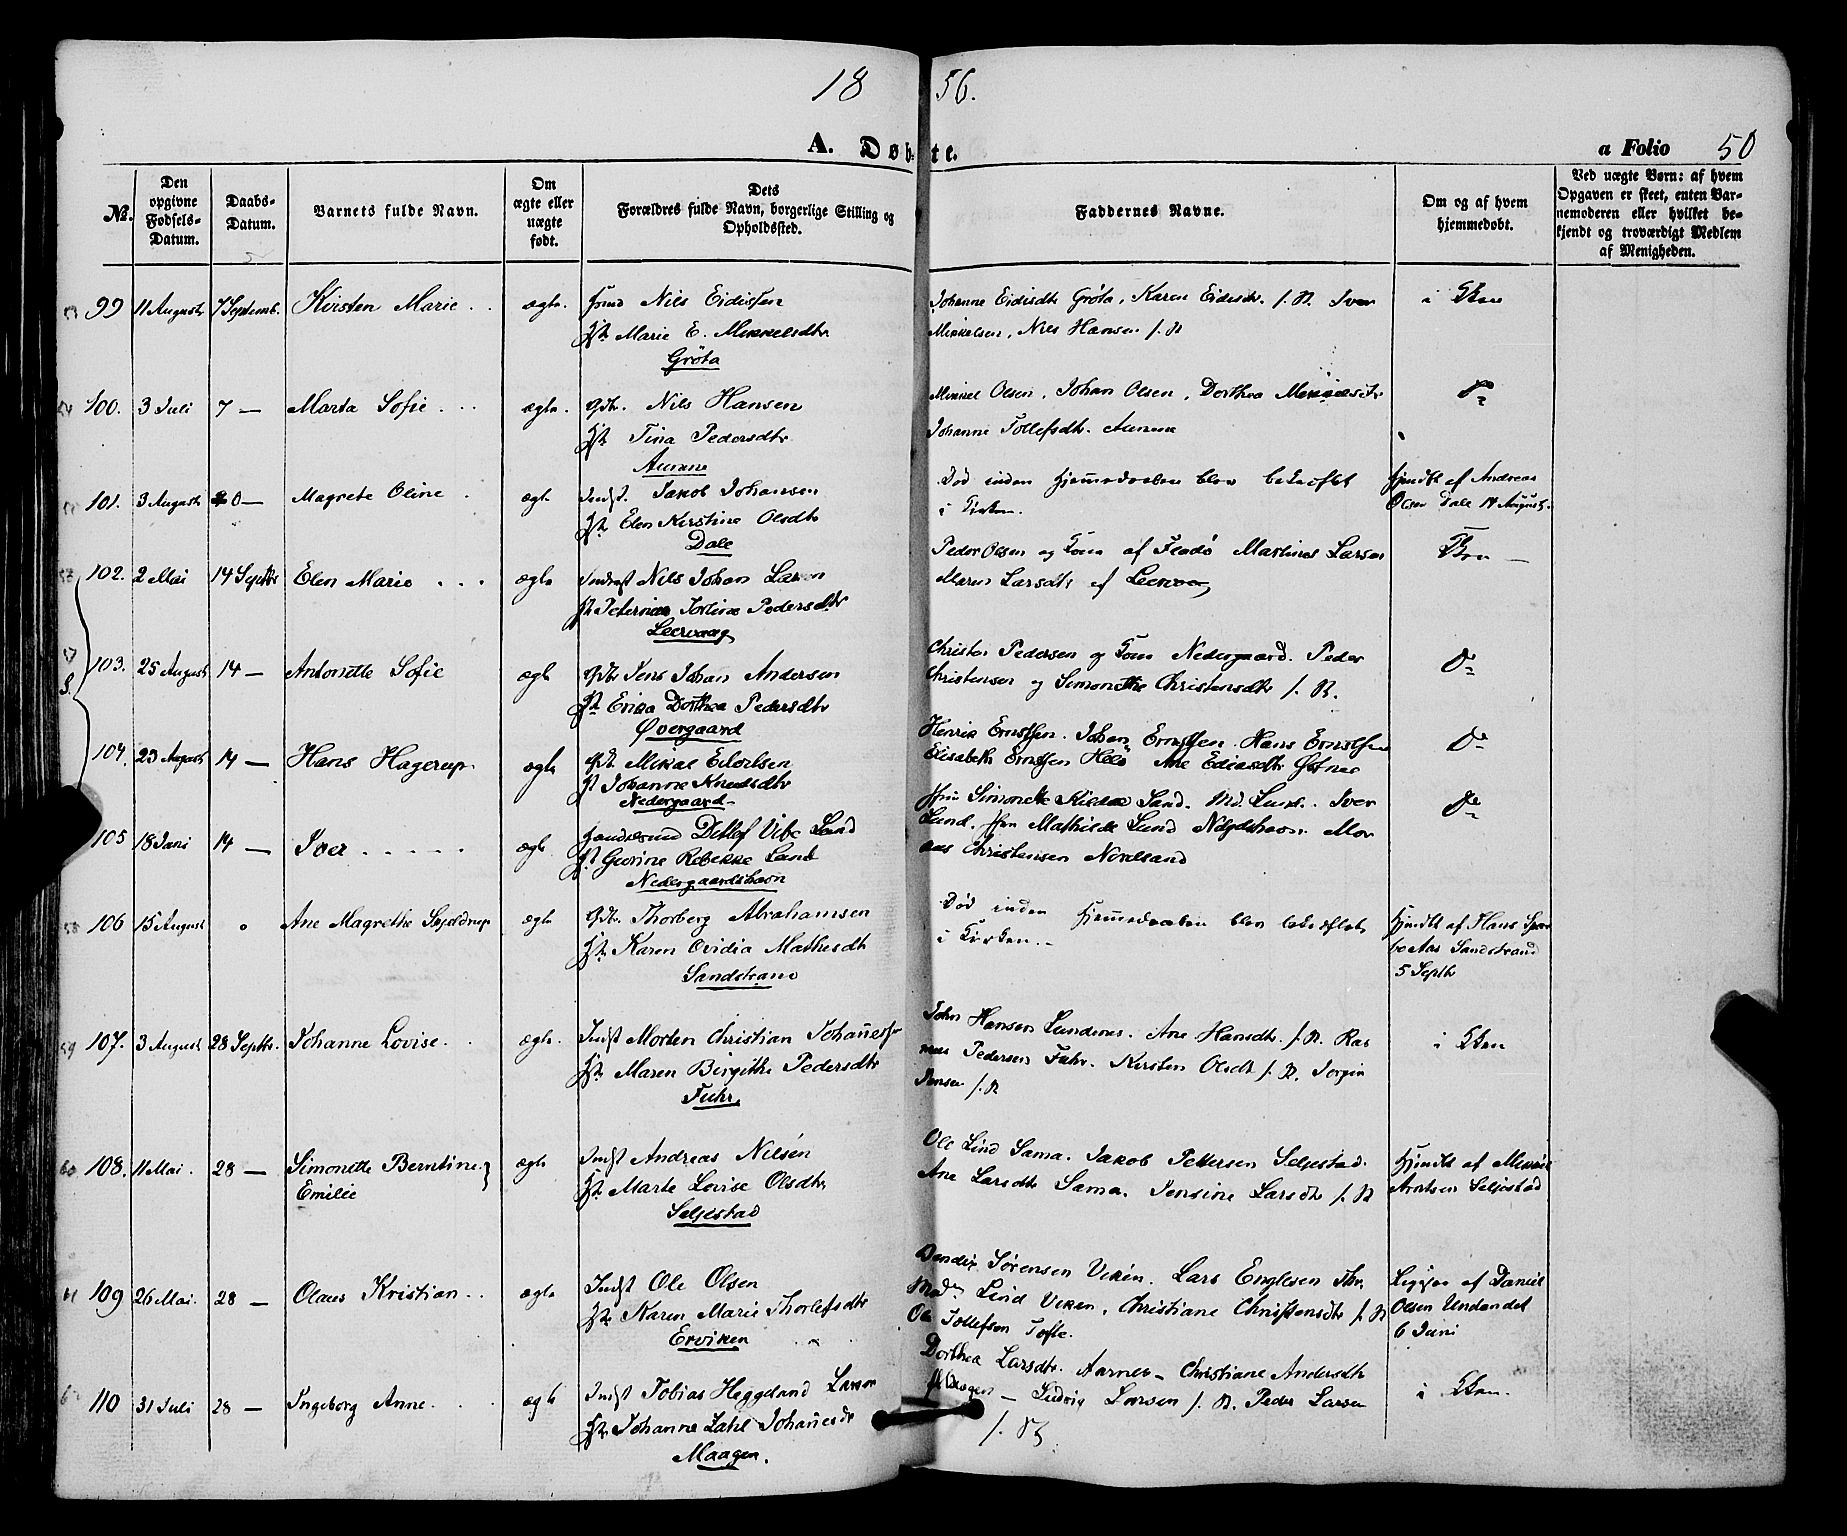 18 56.
A. Døbte.
a Folio 50
No.
Den opgivne Fødsels-Datum.
Daabs-Datum.
Barnets fulde Navn.
Om ægte eller uægte født.
Dets Forældres fulde Navn, borgerlige Stilling og Opholdssted.
Faddernes Navne.
Om og af hvem hjemmedøbt.
Ved uægte Børn: af hvem Opgaven er skeet, enten Barnemoderen eller hvilket bekjendt og troværdigt Medlem af Menigheden.
99 11 August 7 Septemb. Kirsten Marie . . ægte. Nils Eidissen
Marie E. Mikkelsdtr
Grøta
Johanne Eidisdtr Grøta, Karen Eidisdtr. s. St. Iver
Mikkelsen, Nils Hansen s. St
i Kken
100. 3 Juli 7 — Marta Sofie . . . ægte. Gdbr. Nils Hansen
Tina Pedersdtr
Aunane
Mikkel Olsen, Johan Olsen, Dorthea Mikkelsdtr
Johanne Tollefsdtr. Aunane
Do
101. 3 August 0— Magrete Oline . ægte Indst. Jakob Johansen
Elen Kirstine Olsdtr
Dale
Død inden Hjemmedaaben blev bekræftet
i Kirken.
Hjemdbt af Andreas
Olsen Dale 14 August.
102. 2 Mai 14 Septbr Elen Marie . . . ægte Inderst Nils Johan Larsen
Peternica Jortine Pedersdtr
Leervaag
Peder Olsen og Kone af Fladø Martines Larsen
Maren Larsdtr af Leervaag
i Kken —
103. 25 August 14 — Antonette Sofie ægte Gdbr Jens Johan Andersen
Erika Dorthea Pedersdtr
Øvergaard
Christen Pedersen og Kone Nedergaard. Peder
Christensen og Simonette Christensdtr s. St.
Do
104. 23 August 14 — Hans Hagerup. ægte Gdb Mikal Edortsen
Johanne Knudsdtr
Nedergaard
Henrik Ernstsen. Johan Ernstsen. Hans Ernstsen
Elisabeth Ernstsen Ane Ediasdtr
Do
105 18 Juni 14 — Iver . . . . . ægte Handelsmd Detlef Vibe Lund
Gurine Rebekke Lund
Nedergaardshavn
Fru Simonette Kildal Sand. Md. Lund. Iver
Lund. Frn Mathilde Lund
Christensen Nordsand
Do
106 15 August o Ane Magrethe Skjeldrup ægte Gdbr. Thorberg Abrahamsen
Karen Ovidia Mathisdtr
Sandstrand
Død inden Hjemmedaaben blev bekræftet
i Kirken. -
Hjemdbt af Hans
Aas Sandstrand
5 Septbr
107. 3 August 28 Septbr. Johanne Lovise. . ægte. Indst Morten Christian Johanness
Maren Birgitte Pedersdtr
Fuhr.
John Hansen Lundenes. Ane Hansdtr. s. St. Ras
mus Pedersen Fuhr. Kirsten Olsdtr s. St. Jorgin
Jensen s. St
i Kken
108. 11 Mai. 28 — Simonette Berntine } ægte Indst Andreas Nilsen
Emilie
Marte Lovise Olsdtr
Seljestad
Ole Lind Sama. Jakob Pettersen Seljestad.
Ane Larsdtr Sama. Jensine Larsdtr s. St
Hjemdbt af Mikkel
Arntsen Seljestad
109 26 Mai. 28 — Olaus Kristian . . ægte Indst Ole Olsen
Karen Marie Thorlefsdtr
Erviken
Bendix Sørensen Viken. Lars Englesen
Mad. Lind Viken, Christiane Christensdtr s. St
Ole Tollefsen Tofte.
af Daniel
Olsen Undendet
6 Juni
110 31 Juli 28 — Ingeborg Anne . . . ægte Indst Tobias Heggeland Larsen
Johanne Dahl Johannesdr
Maagen.
Dorthea Larsdtr. Aarnes - Christiane Andersdtr
Maagen — Ludvig Larsen s. St. Peder Larsen
s. St
i Kken.